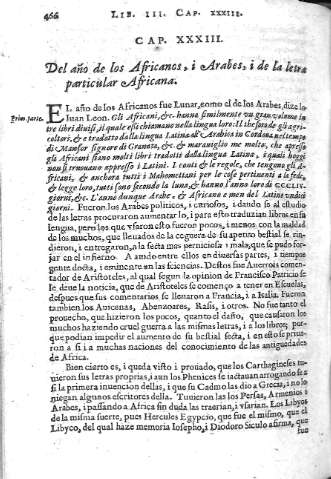 466 LIB. III. CAP. XXXIII.
CAP. XXXIII.
Del año de los Africanos, i Arabes, i de la letra
particular Africana.
Prim. parte.
EL año de los Africanos fue Lunar, como el de los Arabes, dize lo
Juan Leon. Gli Africani, &c. hanno similmente vn gran volume in
tre libri divisi, il quale essi chiamano nella lingua loro: Il thesoro de gli agri-
coltori, è tradotto dalla lingua Latina Arabica in Cordoua, nel tempo
di Mansor signore di Granata, &c. & maraviglio me molto, che apresso
gli Africani siano molti libri tradotti dalla lingua Latina, i quali hoggi
non si truouano appresso i Latini. I conti & le regole, che tengono gli A-
fricani, & anchora tutti i Mahomettani per le cose pertinenti a la fede,
& legge loro, tutti sono secondo la luna, & hanno l'anno loro di CCCLIV.
giorni, &c. L'anno dunque Arabo & Africano e men del Latino vndici
giorni. Fueron los Arabes politicos, i curiosos, i dando se al estudo
de las letras procuraron aumentar lo, i para esto traduzian libros en su
lengua, pero los que vsaron esto fueron pocos, i menos con la maldad
de los muchos, que lleuados de la ceguera de su apetito bestial se rin-
dieron, i entregaron, a la secta mas perniciosa i mala, que se pudo for-
jar en el infierno. A auido entre ellos en diversas partes, i tiempos
gente docta, i eminente en las sciencias. Destos fue Averrois comen-
tador de Aristoteles, al qual segun la opinion de Francisco Patricio se
le deue la noticia, que de Aristoteles se començo a tener en Escuelas,
despues que sus comentarios se lleuaron a Francia, i a Italia. Fueron
tambien los Autores, Abenzoares, Rasis, i otros. No fue tanto el
prouecho, que hizieron los pocos, quanto el daño, que causaron los
muchos haziendo cruel guerra a las mismas letras, i a los libros, por-
que podian impedir el aumento de su bestial secta, i en esto se priua-
ron a si i a muchas naciones del conocimiento de las antiguedades
de Africa.
Bien cierto es, i queda visto i prouado, que los Carthagineses tu-
uieron sus letras proprias, i aun los Phenices se iactauan arrogando se a
si la primera inuencion dellas, i que su Cadmo las dio a Grecia, i no lo
niegan algunos escritores della. Tuuieron las los Persas, Armenios i
Arabes, i passando a Africa sin duda las traerian, i vsarian. Los Libyos
de la misma suerte, pues Hercules Egypcio, que fue el mismo, que el
Libyco, del qual haze memoria Iosepho, i Diodoro Siculo afirma, que
fue